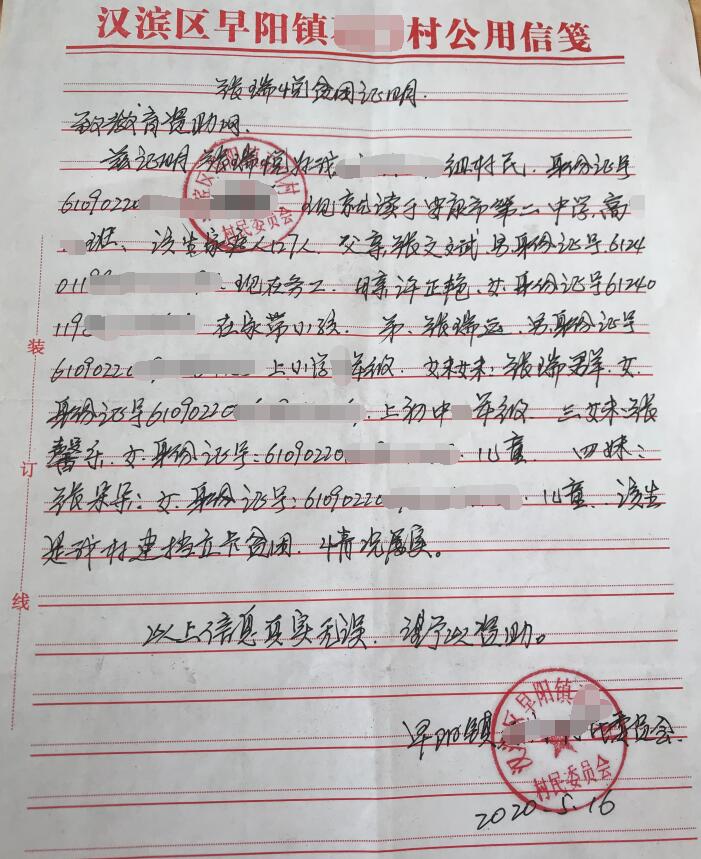 汉滨区早阳镇 村公用信笺
张瑞悦贫困证明.
致教育资助网.
兹证明张瑞悦姓我 组村民.身份证号
61090220 .现就读于安康市第二中学.高
班、该生家庭人口7人.父亲张文斌.男.身份证号.6124
0119 .现在务工.母亲许正艳.女.身份证号61240
119 在家带小孩.弟、张瑞 .男.身份证号
61090220 上小学 年级.妹妹:张瑞群.女.
身份证号61090220 .上初中 年级 三妹:张
馨乐.女.身份证号:61090220 .儿童. 四妹:
张朵朵:女.身份证号:61090220 .儿童.该生
是我村建档立卡贫困.情况属实。
以上信息真实无误.请予以资助。
早阳镇 委员会.
2020.5.16
装
订
线
村民委员会
汉滨区早阳镇
村民委员会